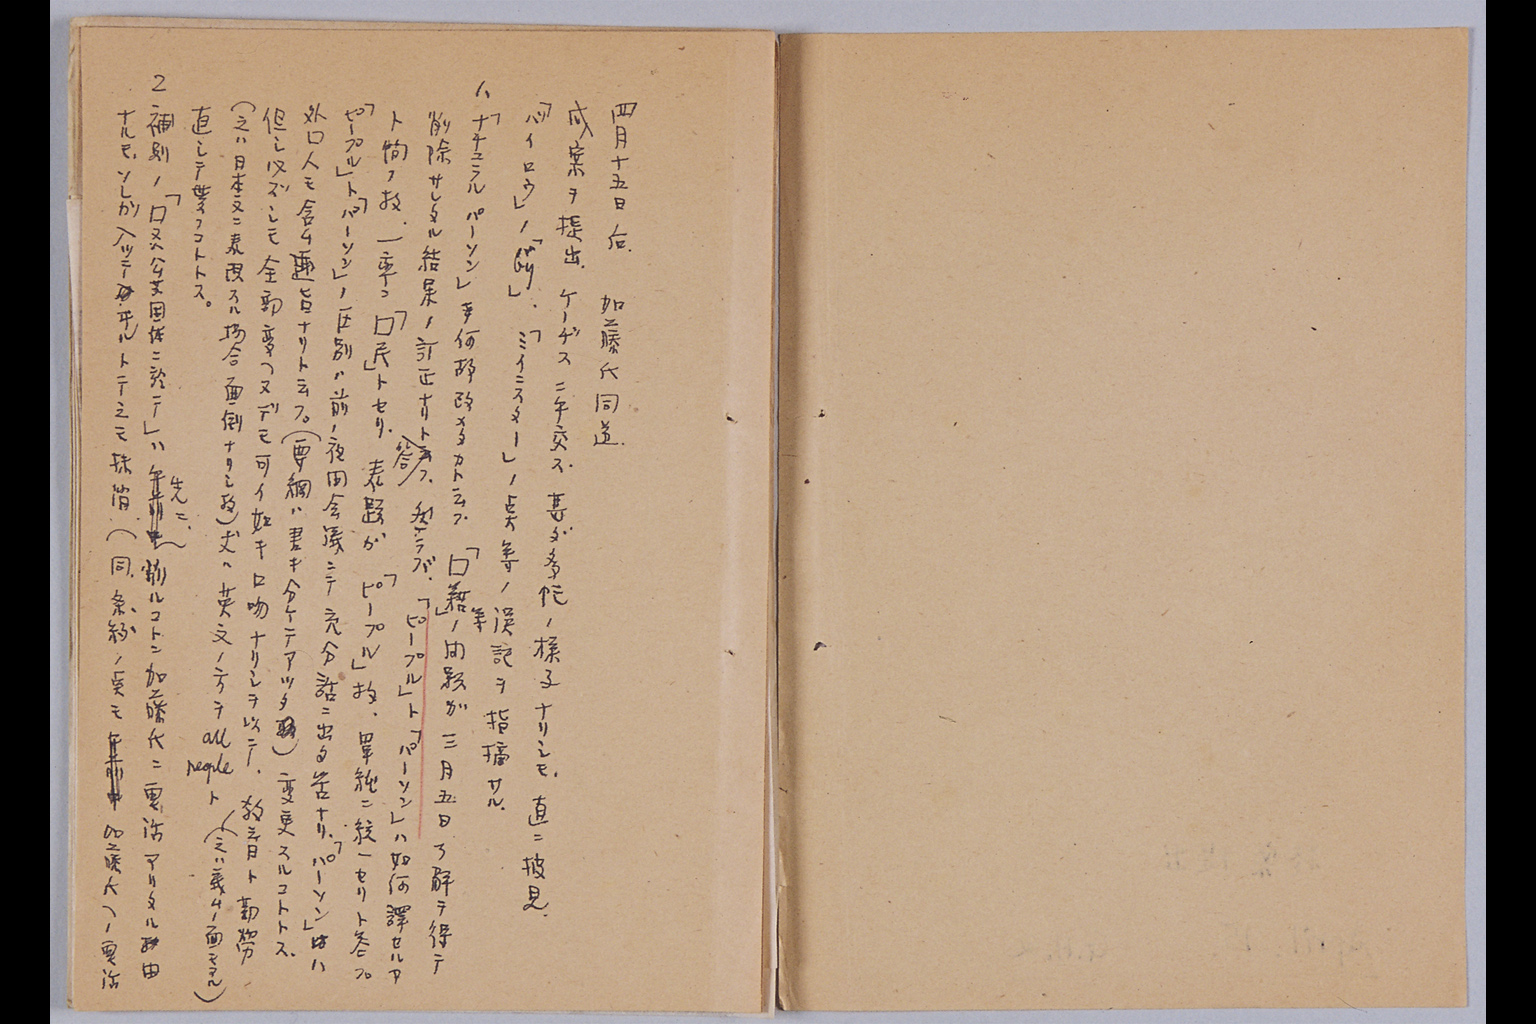 四月十五日后. 加藤氏同道.
成案ヲ提出. ケーヂスニ手交ス. 甚ダ多忙ノ様子ナリシモ. 直ニ披見.
「バイロウ」ノ「」. 「ミイニスター」ノ点等ノ誤記ヲ指摘サル.
1. 「ナチユラルパーソン」ヲ何故改メタカト云フ. 「口籍」等ノ問題ガ三月五日了解ヲ得テ
削除サレタル結果ノ訂正ナリト云フ. 「ピープル」ト「パーソン」ハ如何譯セルヤ
ト問フ故. 一率ニ「口民」トセリ. 表題ガ「ピープル」故、単純ニ統一セリト答フ
「ピープル」ト「パーソン」ノ区別ハ前ノ夜間会議ニテ充分話ニ出タ筈ナリ.「パーソン」ハ
外口人モ含ム趣旨ナリト云フ。(要綱ハ書キ分ケテアッタ) 変更スルコトトス.
但シ必ズシモ全部変ヘヌデモ可イ如キ口吻ナリシヲ以テ.
(之ハ日本文ニ表現スル場合面倒ナリシ故)英文ノ方ヲ all people ト(之ハ義ムノ面モアル)
直シテ貰フコトトス。
2 補則ノ「口又ハ公共団体ニ於テ」ハ先ニ、削ルコトニ加藤氏ニ電話アリタル由
ナルモ、ソレガ入ツテ井ルトテ之モ抹消.(同.条約ノ点モ 加藤氏ヘノ電話